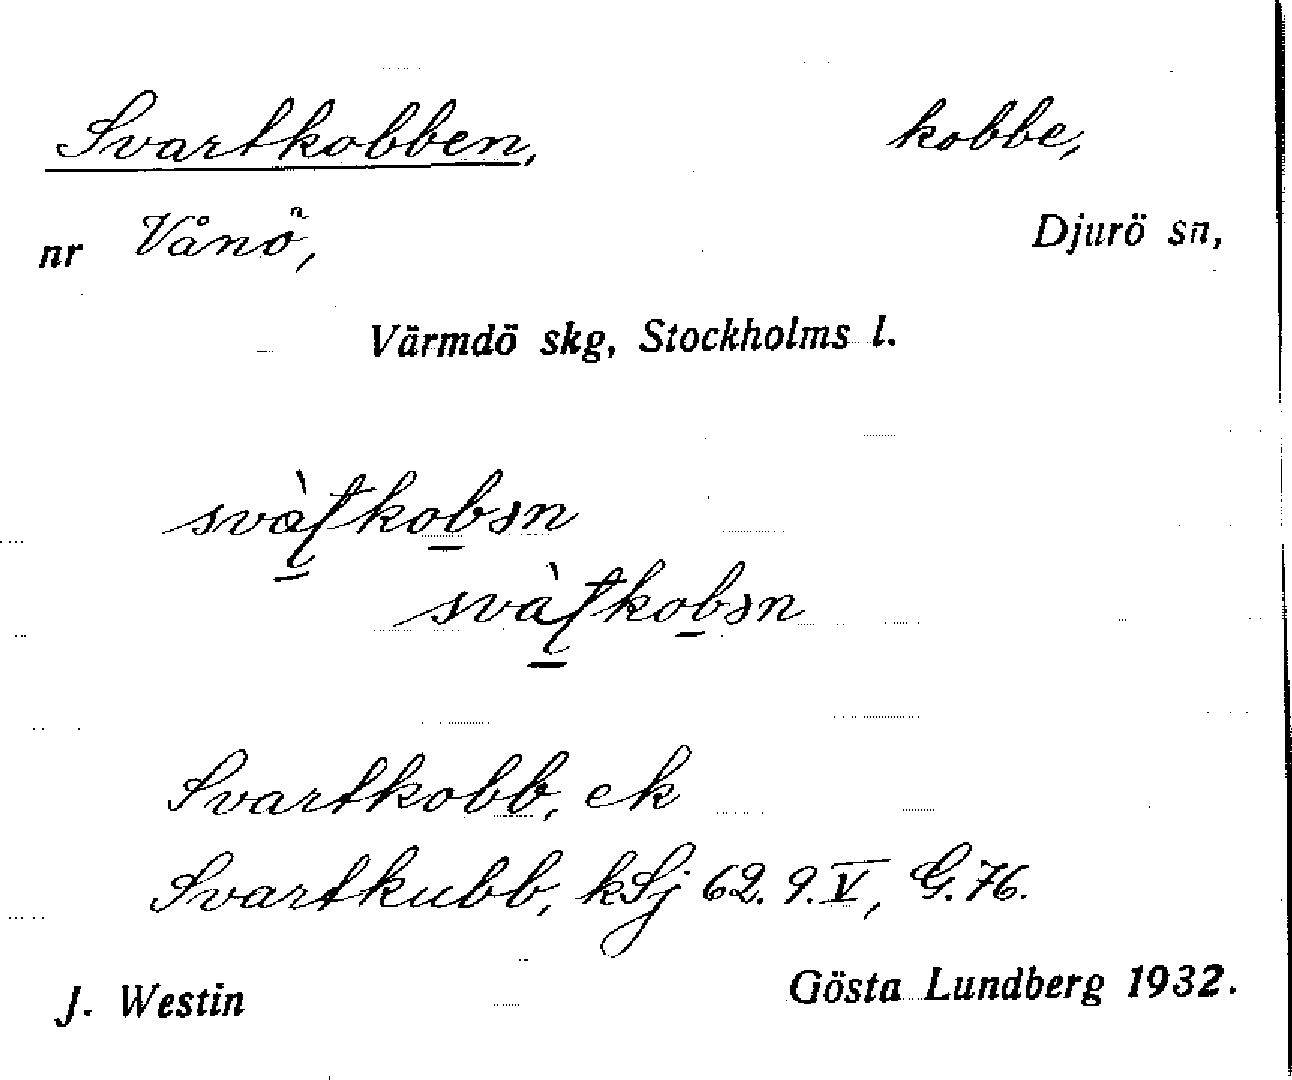 Svartkobben, kobbe,
nr Vånö, Djurö sn,
Värmdö skg, Stockholms l.
Svartkobb, ek
Svartkubb, kSj 62. 9. V, G. 76.
J. Westin Gösta Lundberg 1932.